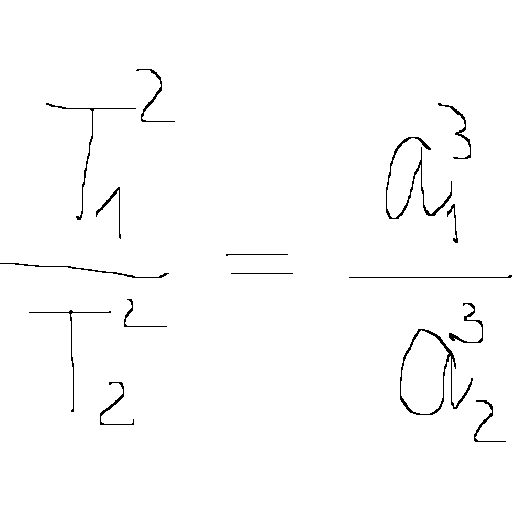 \frac{T_1^2}{T_2^2} = \frac{a_1^3}{a_2^3}